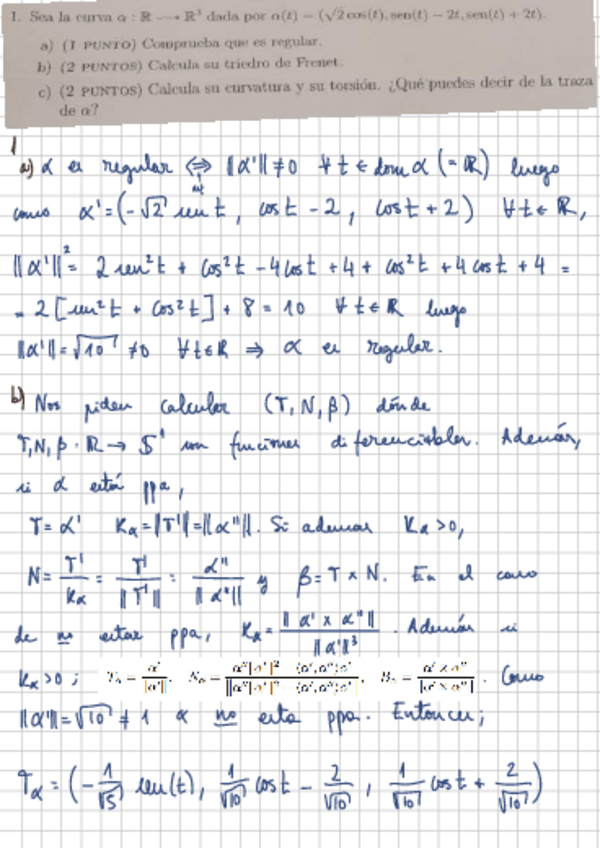 1. Sea la curva α : ℝ ⟶ ℝ³ dada por α(t) = (√2 cos(t), sen(t) − 2t, sen(t) + 2t).
a) (1 PUNTO) Comprueba que es regular.
b) (2 PUNTOS) Calcula su triedro de Frenet.
c) (2 PUNTOS) Calcula su curvatura y su torsión. ¿Qué puedes decir de la traza
de α?
1
a) α es regular ⇔ ‖α'‖ ≠ 0 ∀ t ∈ dom α (= ℝ) luego
como α' = (−√2 sen t, cos t − 2, cos t + 2) ∀ t ∈ ℝ,
‖α'‖² = 2 sen² t + cos² t − 4 cos t + 4 + cos² t + 4 cos t + 4 =
= 2 [sen² t + cos² t] + 8 = 10 ∀ t ∈ ℝ luego
‖α'‖ = √10 ≠ 0 ∀ t ∈ ℝ ⇒ α es regular.
b) Nos piden calcular (T, N, β) dónde
T, N, β : ℝ → S¹ son funciones diferenciables. Además,
si α está ppa,
T = α' Kα = ‖T'‖ = ‖α''‖. Si ademas Kα > 0,
N = T'/Kα = T'/‖T'‖ = α''/‖α''‖ y β = T × N. En el caso
de no estar ppa, Kα = ‖α' × α''‖/‖α'‖³. Además si
Kα > 0 ; Tα = α'/|α'|, Nα = α''|α'|² − ⟨α', α''⟩α'/|α''|α'|² − ⟨α', α''⟩α'|, Bα = α' × α''/|α' × α''|. Como
‖α'‖ = √10 ≠ 1 α no esta ppa. Entonces;
Tα = (−1/√5 sen(t), 1/√10 cos t − 2/√10, 1/√10 cos t + 2/√10)